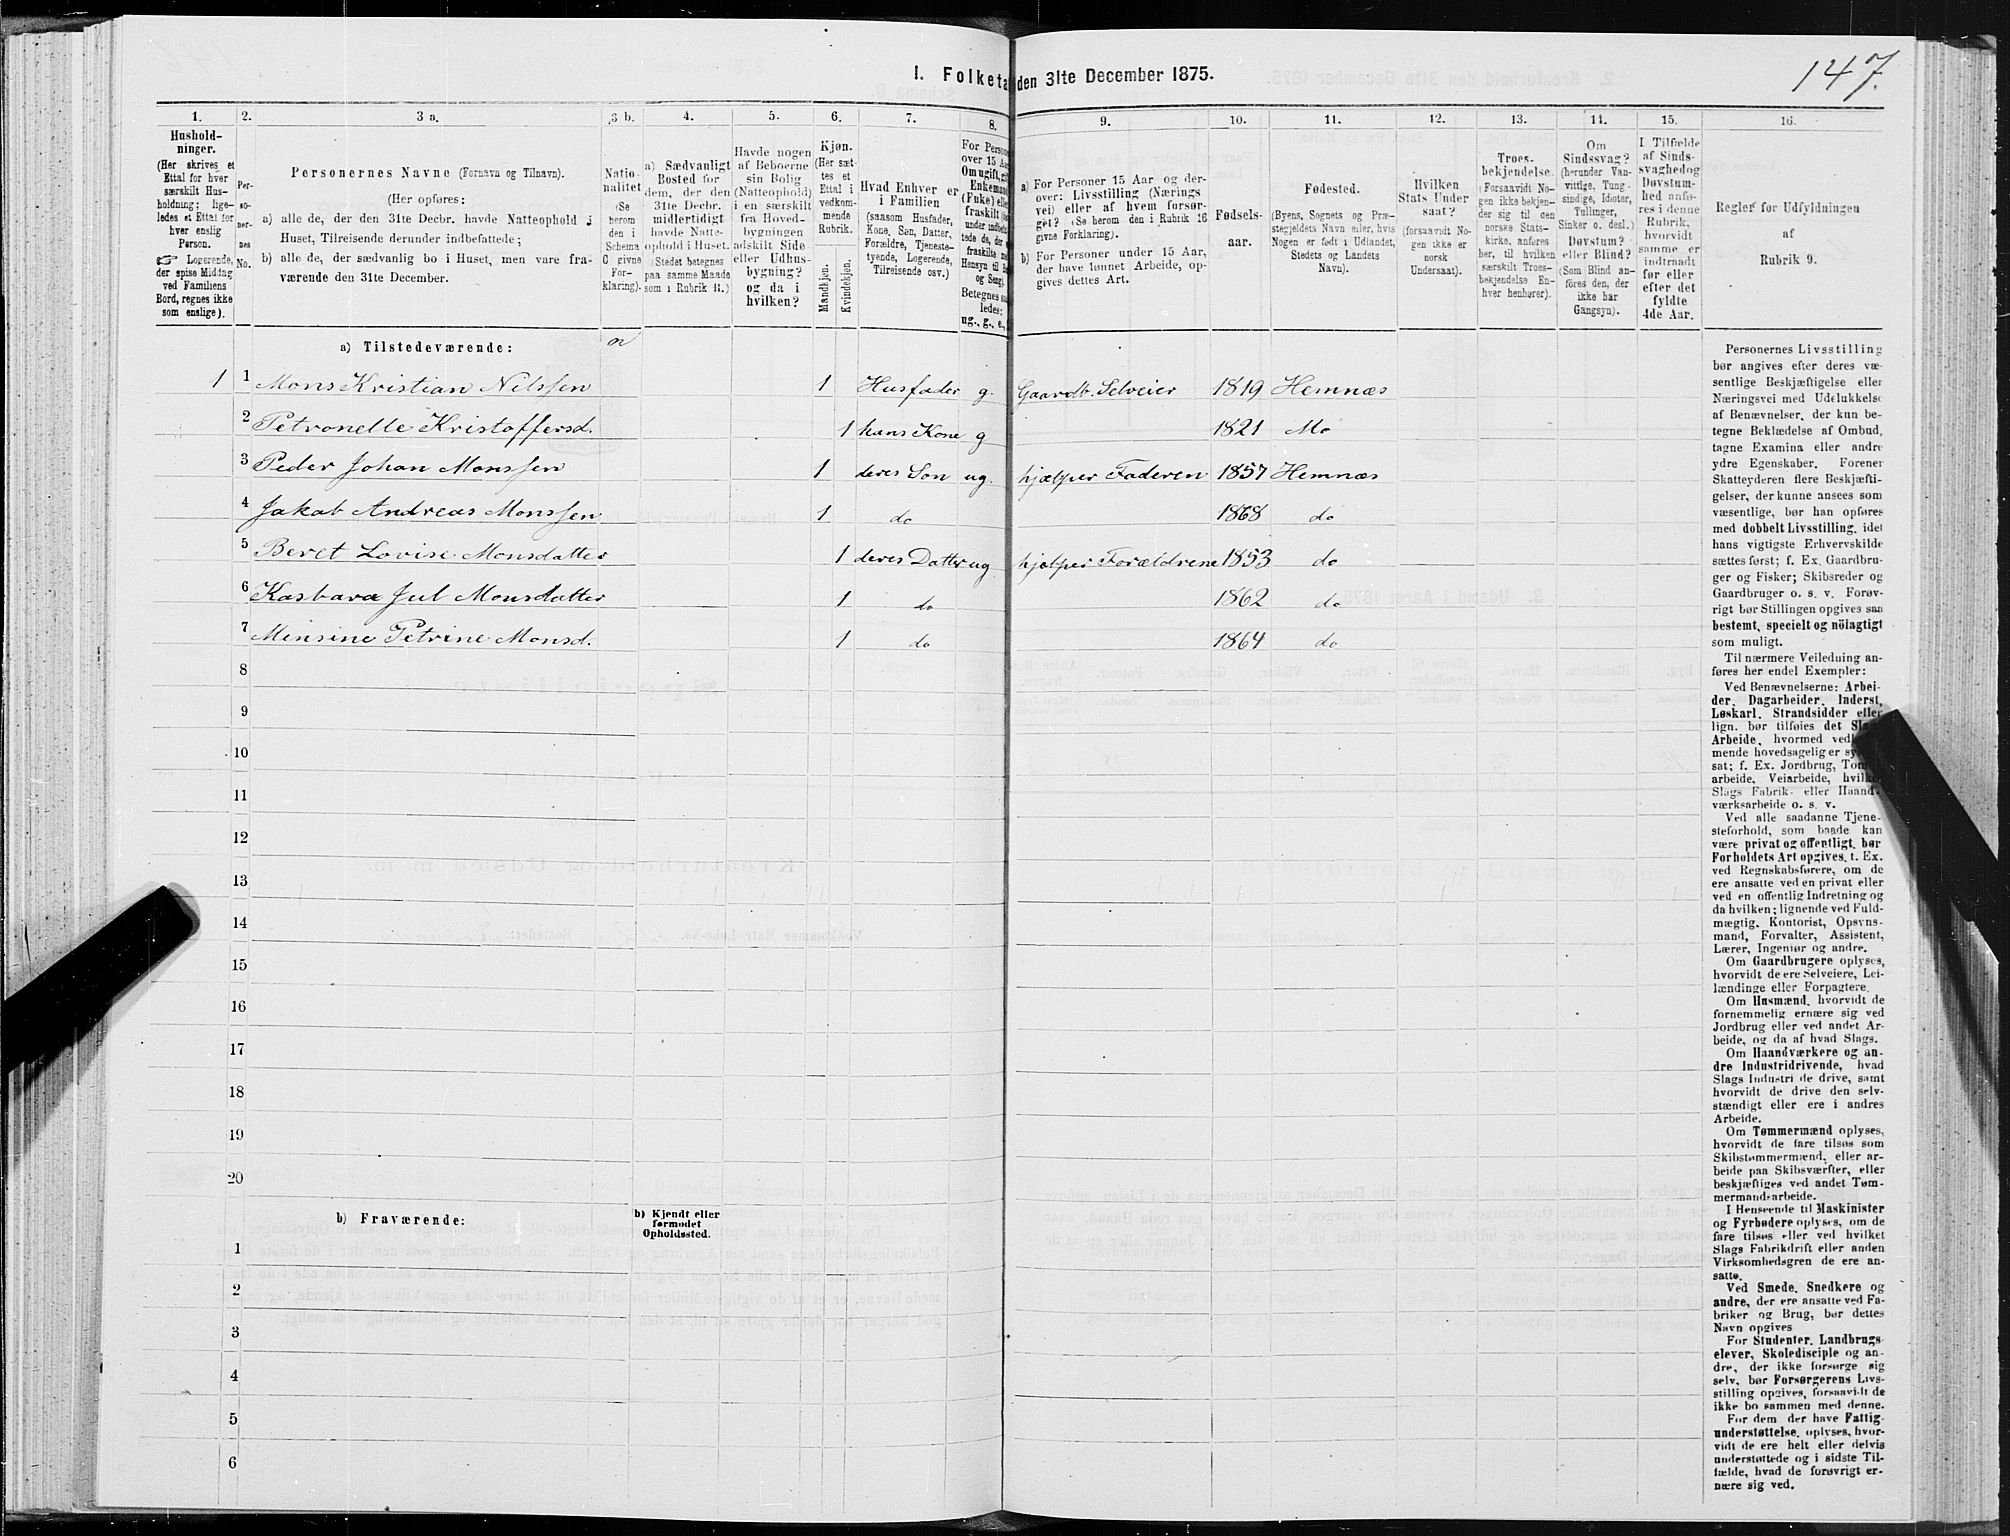 147.
I. Folketa den 31te December 1875.
1. 2. 3 a. 3 b. 4. 5. 6. 7. 8. 9. 10. 11. 12. 13. 14. 15. 16.
Hushold-
ninger.
(Her skrives et
Ettal for hver
særskilt Hus-
holdning; lige-
ledes et Ettal for
hver enslig
Person.
☞ Logerende,
der spise Middag
ved Familiens
Bord, regnes ikke
som enslige).
Per-
so-
ner-
nes
No.
Personernes Navne (Fornavn og Tilnavn).
(Her opføres:
a) alle de, der den 31te Decbr. havde Natteophold i
Huset, Tilreisende derunder indbefattede;
b) alle de, der sædvanlig bo i Huset, men vare fra-
værende den 31te December.
Natio-
nalitet
(Se
herom
den i
Schema
C givne
For-
klaring).
a) Sædvanligt
Bosted for
dem, der den
31te Decbr.
midlertidigt
havde Natte-
ophold i Huset.
(Stedet betegnes
paa samme Maade
som i Rubrik 11.)
Havde nogen
af Beboerne
sin Bolig
(Natteophold)
i en særskilt
fra Hoved-
bygningen
adskilt Side-
eller Udhus-
bygning?
og da i
hvilken?
Kjøn.
(Her sæt-
tes et
Ettal i
vedkom-
mende
Rubrik.
Mandkjøn.
Kvindekjøn.
Hvad Enhver er
i Familien
(saasom Husfader,
Kone, Søn, Datter,
Forældre, Tjeneste-
tyende, Logerende,
Tilreisende osv.)
For Persone
over 15 Aa
Om ugift, gif
Enkemand
(Enke) elle
fraskilt
under indbefat
tede de, der
fraskilte me
Hensyn til Bo
og Seng).
Betegnes saa
ledes:
ug., g., e.,
a) For Personer 15 Aar og der-
over: Livsstilling (Nærings-
vei) eller af hvem forsør-
get? (Se herom den i Rubrik 16
givne Forklaring).
b) For Personer under 15 Aar,
der have lønnet Arbeide, op-
gives dettes Art.
Fødsels-
aar.
Fødested.
(Byens, Sognets og Præ-
stegjeldets Navn eller, hvis
Nogen er født i Udlandet,
Stedets og Landets
Navn).
Hvilken
Stats Under
saat?
(forsaavidt No-
gen ikke er
norsk
Undersaat).
Troes-
bekjendelse.
(Forsaavidt No-
gen ikke bekjen-
der sig til den
norske Stats-
kirke, anføres
her, til hvilken
særskilt Troes-
bekjendelse En-
hver henhører).
Om
Sindssvag?
(herunder Van-
vittige, Tung-
sindige, Idioter,
Tullinger,
Sinker o. desl.)
Døvstum?
eller Blind?
(Som Blind an-
føres den, der
ikke har
Gangsyn).
I Tilfælde
af Sinds-
svaghed og
Døvstum-
hed anfø-
res i denne
Rubrik,
hvorvidt
samme er
indtraadt
før eller
efter det
fyldte
4de Aar.
Regler for Udfyldningen
af
Rubrik 9.
a) Tilstedeværende:
n
1 1 Mons Kristian Nilssen 1 Husfader g. Gaardb. Selveier 1819 Hemnæs
2 Petronelle Kristoffersd. 1 hans Kone g 1821 Mo
3 Peder Johan Monssen 1 deres Søn ug. hjælper Faderen 1857 Hemnæs
4 Jakob Andreas Monssen 1 do 1868 do
5 Beret Lovise Monsdatter 1 deres Datter ug hjælper Forældrene 1853 do
6 Kasbara Jul Monsdatter 1 do 1862 do
7 Minsine Petrine Monsd. 1 do 1864 do
8
9
10
11
12
13
14
15
16
17
18
19
20
b) Fraværende:
b) Kjendt eller
formodet
Opholdssted.
1
2
3
4
5
6
Personernes Livsstilling
bør angives efter deres væ-
sentlige Beskjæftigelse eller
Næringsvei med Udelukkelse
af Benævnelser, der kun be-
tegne Beklædelse af Ombud,
tagne Examina eller andre
ydre Egenskaber. Forener
Skatteyderen flere Beskjæfti-
gelser, der kunne ansees som
væsentlige, bør han opføres
med dobbelt Livsstilling, idet
hans vigtigste Erhvervskilde
sættes først; f. Ex. Gaardbru-
ger og Fisker; Skibsreder og
Gaardbruger o. s. v. Forøv-
rigt bør Stillingen opgives saa
bestemt, specielt og nöiagtigt
som muligt.
Til nærmere Veiledning an-
føres her endel Exempler:
Ved Benævnelserne: Arbei-
der, Dagarbeider, Inderst,
Løskarl, Strandsidder eller
lign. bør tilføies det Slags
Arbeide, hvormed ved
mende hovedsagelig er
sat; f. Ex. Jordbrug, Tøm
arbeide, Veiarbeide, hvilke
Slags Fabrik- eller Haand-
værksarbeide o. s. v.
Ved alle saadanne Tjene-
steforhold, som baade kan
være privat og offentligt, bør
Forholdets Art opgives, t. Ex.
ved Regnskabsførere, om de
ere ansatte ved en privat eller
ved en offentlig Indretning og
da hvilken; lignende ved Fuld-
mægtig, Kontorist, Opsyns-
mand, Forvalter, Assistent,
Lærer, Ingeniør og andre.
Om Gaardbrugere oplyses,
hvorvidt de ere Selveiere, Lei-
lændinge eller Forpagtere.
Om Husmænd, hvorvidt de
fornemmelig ernære sig ved
Jordbrug eller ved andet Ar-
beide, og da af hvad Slags.
Om Haandværkere og an-
dre Industridrivende, hvad
Slags Industri de drive, samt
hvorvidt de drive den selv-
stændigt eller ere i andres
Arbeide.
Om Tømmermænd oplyses,
hvorvidt de fare tilsøs som
Skibstømmermænd, eller ar-
beide paa Skibsværfter, eller
beskjæftiges ved andet Tøm-
mermandsarbeide.
I Henseende til Maskinister
og Fyrbødere oplyses, om de
fare tilsøs eller ved hvilket
Slags Fabrikdrift eller anden
Virksomhedsgren de ere an-
satte.
Ved Smede, Snedkere og
andre, der ere ansatte ved Fa-
briker og Brug, bør dettes
Navn opgives
For Studenter, Landbrugs-
elever, Skoledisciple og an-
dre, der ikke forsørge sig
selv, bør Forsørgerens Livs-
stilling opgives, forsaavidt de
ikke bo sammen med denne.
For dem der have Fattig-
understøttelse, oplyses, hvor-
vidt de ere helt eller delvis
understøttede og i sidste Til-
fælde, hvad de forøvrigt er-
nære sig ved.